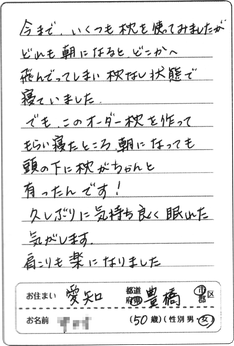 今まで、いくつも枕を使ってみましたが
どれも朝になると、どこかへ
飛んでってしまい枕なし状態で
寝ていました。
でも、このオーダー枕を作って
もらい寝たところ、朝になっても
頭の下に枕がちゃんと
有ったんです!
久しぶりに気持ち良く眠れた
気がします。
肩こりも楽になりました
お住まい 愛知 都道府県 豊橋 市郡区
お名前 (50歳)(性別 男・女)